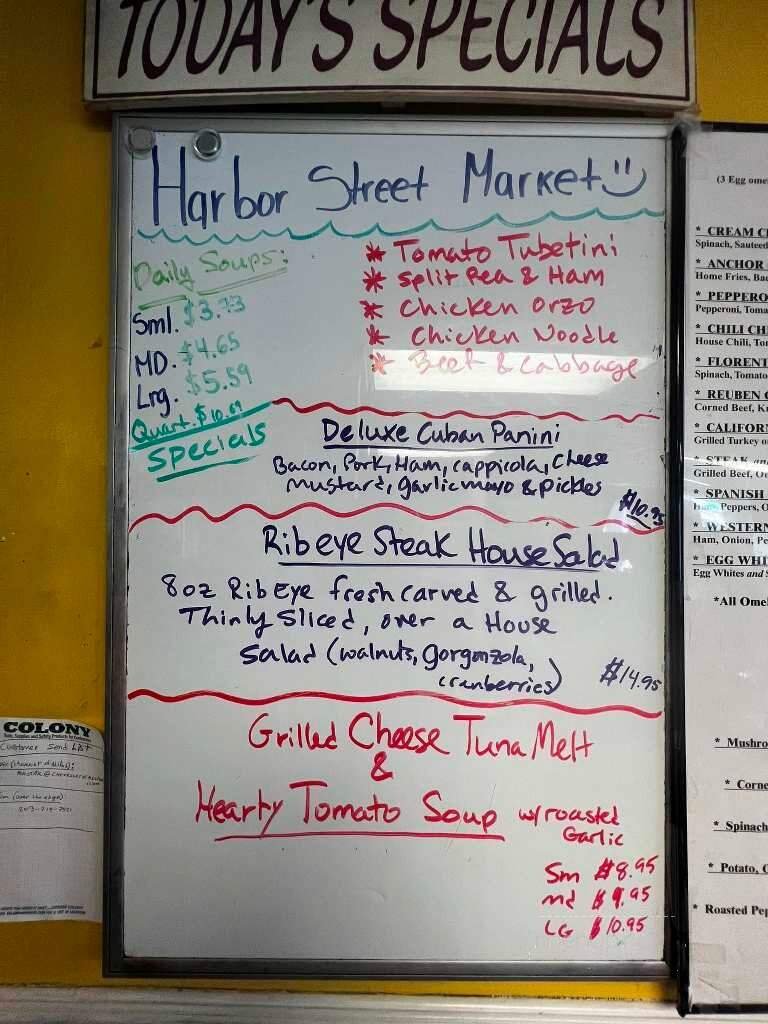 TODAY'S SPECIALS
Harbor Street Market
Daily Soups:
Sml. $3.73
MD. $4.65
Lrg. $5.59
Quart. $10.69
* Tomato Tubetini
* Split Pea & Ham
* Chicken Orzo
* Chicken Noodle
* Beef & Cabbage
Specials
Deluxe Cuban Panini
Bacon, Pork, Ham, cappicola, Cheese
mustard, garlic mayo & pickles
$10.95
Ribeye Steak House Salad
8oz RibEye fresh carved & grilled.
Thinly Sliced, over a House
Salad (walnuts, gorgonzola,
cranberries)
$14.95
Grilled Cheese Tuna Melt
&
Hearty Tomato Soup w/roasted
Garlic
Sm $8.95
md $9.95
LG $10.95
(3 Egg ome
* CREAM C
Spinach, Sauteed
* ANCHOR
Home Fries, Ba
* PEPPERO
Pepperoni, Toma
* CHILI CH
House Chili, To
* FLORENT
Spinach, Tomato
* REUBEN
Corned Beef, K
* CALIFOR
Grilled Turkey o
* STEAK and
Grilled Beef, O
* SPANISH
Peppers, O
* WESTERN
Ham, Onion, Pe
* EGG WHI
Egg Whites and
*All Ome
* Mushro
* Corne
* Spinach
* Potato,
* Roasted Pep
COLONY
Customer Send List